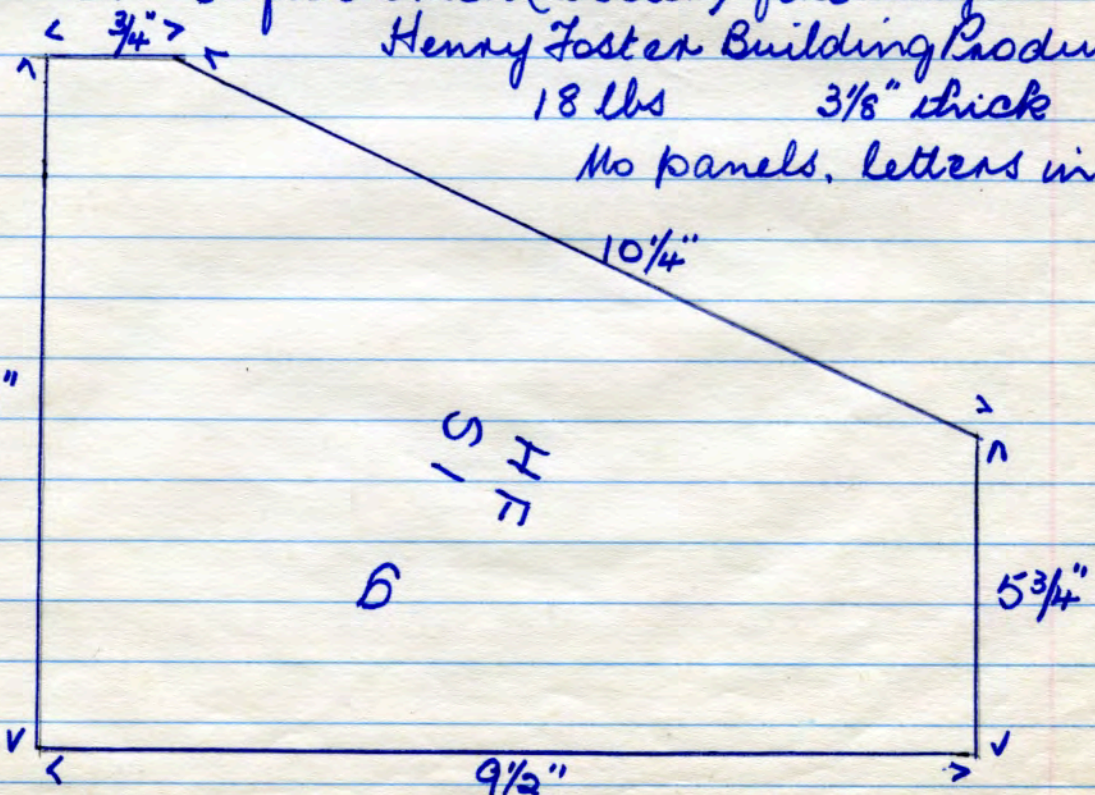 3/4"
Henry Foster Building Produ
18 lbs 3 1/8" thick
No panels, letters in
10 1/4"
"
S H
I F
6
5 3/4"
9 1/2"